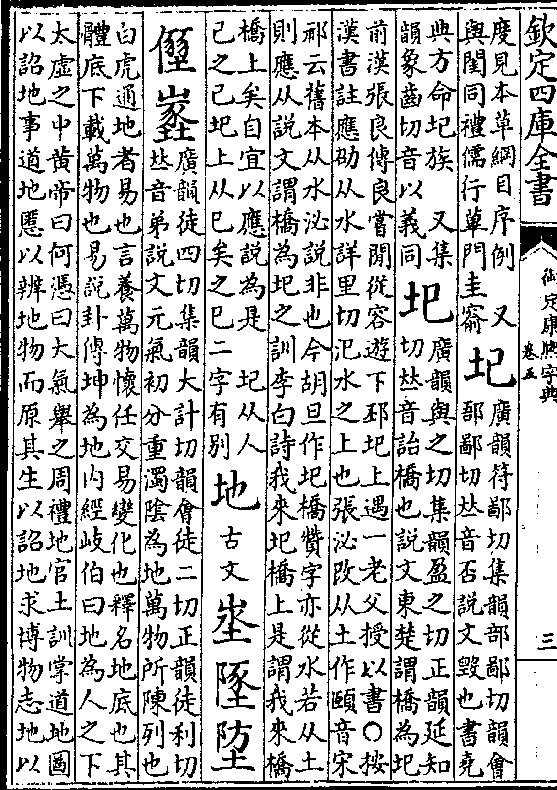 欽定四庫全書
御定康熙字典
卷五
三
度見本草綱目序例 又
與閨同禮儒行蓽門圭窬
圮
廣韻符鄙切集韻部鄙切韻會
部鄙切𠀤音否說文毀也書堯
典方命圮族 又集
韻象齒切音以義同
圯
廣韻與之切集韻盈之切正韻延知
切𠀤音詒橋也說文東楚謂橋為圯
前漢張良傳良嘗閒從容遊下邳圯上遇一老父授以書○按
漢書註應劭从水詳里切汜水之上也張泌改从土作頤音宋
祁云舊本从水泌說非也今胡旦作圯橋贊字亦從水若从土
則應从說文謂橋為圯之訓李白詩我來圯橋上是謂我來橋
橋上矣自宜以應說為是 圮从人
己之己圯上从巳矣之巳二字有別
地
古文
埊墬埅
廣韻徒四切集韻大計切韻會徒二切正韻徒利切
𠀤音弟說文元氣初分重濁陰為地萬物所陳列也
白虎通地者易也言養萬物懷任交易變化也釋名地底也其
體底下載萬物也易說卦傳坤為地內經岐伯曰地為人之下
太虛之中黃帝曰何憑曰大氣舉之周禮地官土訓掌道地圖
以詔地事道地慝以辨地物而原其生以詔地求博物志地以